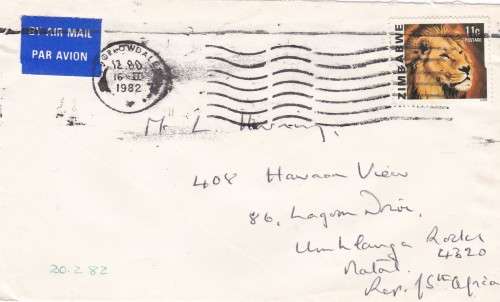 BY AIR MAIL
PAR AVION
BORROWDALE
12.80
16 II
1982
ZIMBABWE
11c
POSTAGE
Mr L
408 Hawaan View
86, Lagoon Drive,
Umhlanga Rocks
4320
Natal.
Rep. of Sth Africa
20.2.82